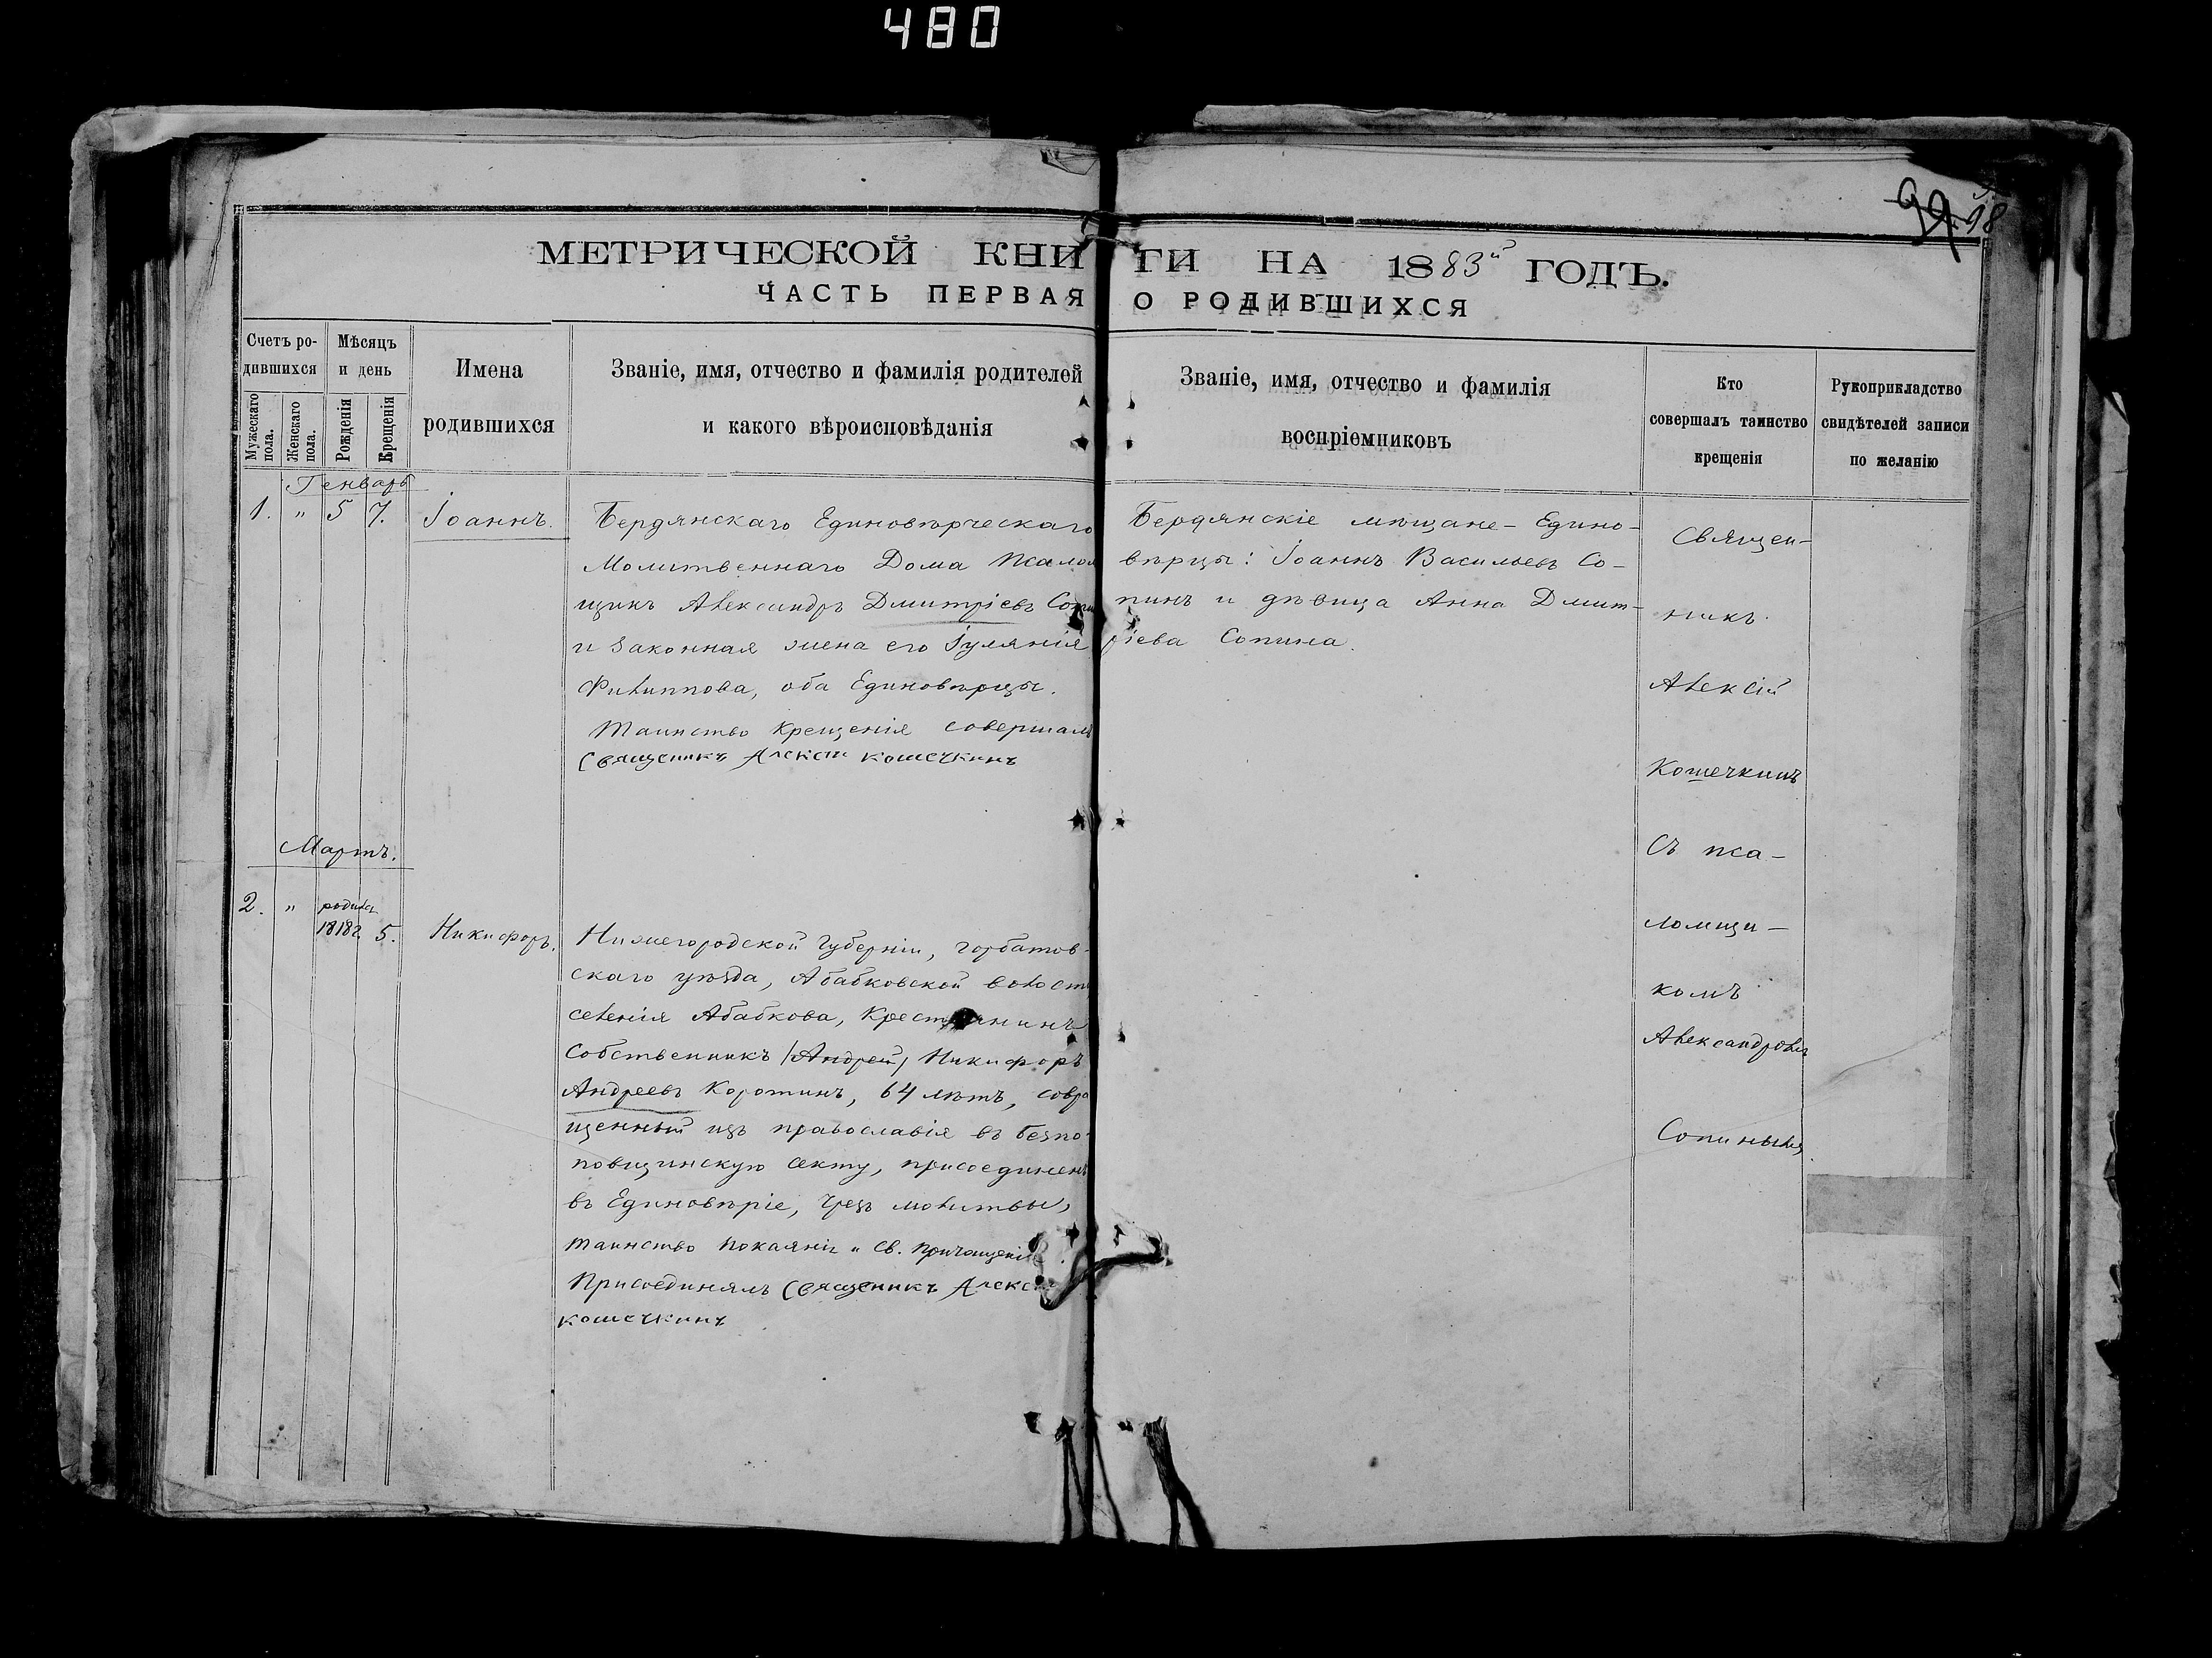 480
98
МЕТРИЧЕСКОЙ КНИГИ НА 1883й ГОДЪ.
ЧАСТЬ ПЕРВАЯ О РОДИВШИХСЯ
Счетъ ро-
дившихся
Мужескаго пола.
Женскаго пола.
Мѣсяцъ
и день
Рожденія
Крещенія
Имена
родившихся
Званіе, имя, отчество и фамилія родителей
и какого вѣроисповѣданія
Званіе, имя, отчество и фамилія
воспріемниковъ
Кто
совершалъ таинство
крещенія
Рукоприкладство
свидѣтелей записи
по желанію
Генварь
1. " 5 7. Іоаннъ.
Бердянскаго Единовѣрческаго
Молитвеннаго Дома Псалом
щикъ Александръ Дмитріевъ Сопи
и законная жена его Іуланія
Филиппова, оба Единовѣрцы.
Таинство крещенія совершалъ
Священикъ Алексій Кошечкинъ
Бердянскіе мѣщане - Едино-
вѣрцы: Іоаннъ Васильевъ Со-
пинъ и дѣвица Анна Дмит-
ріева Сопина.
Священ-
никъ
Алексій
Кошечкинъ
Съ пса-
ломщи-
комъ
Александромъ
Сопинымъ.
Мартъ.
2. " родил. 1818г. 5. Никифоръ.
Нижегородской Губерніи, Горбатов-
скаго уѣзда, Абабковской волост
селенія Абабкова, Крестьянинъ
Собственникъ /Андрей/ Никифоръ
Андреевъ Коротинъ, 64 лѣтъ, совра
щенный изъ православія въ безпо-
повщинскую секту, присоединенъ
въ Единовѣріе, чрезъ молитвы,
таинство покаянія и св. Причащенія.
Присоединялъ Священикъ Алексій
Кошечкинъ